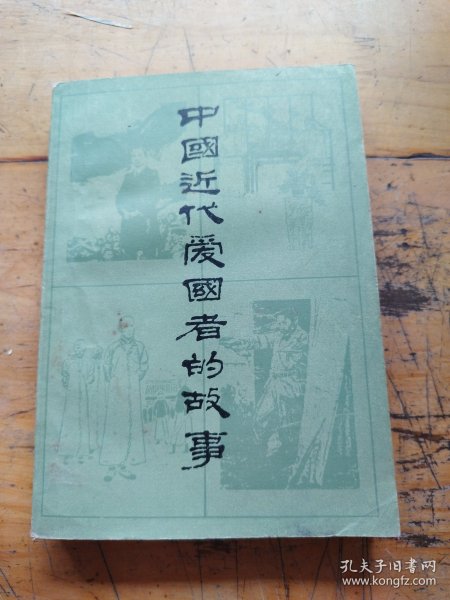 中國近代爱國者的故事
孔夫子旧书网
www.kongfz.com